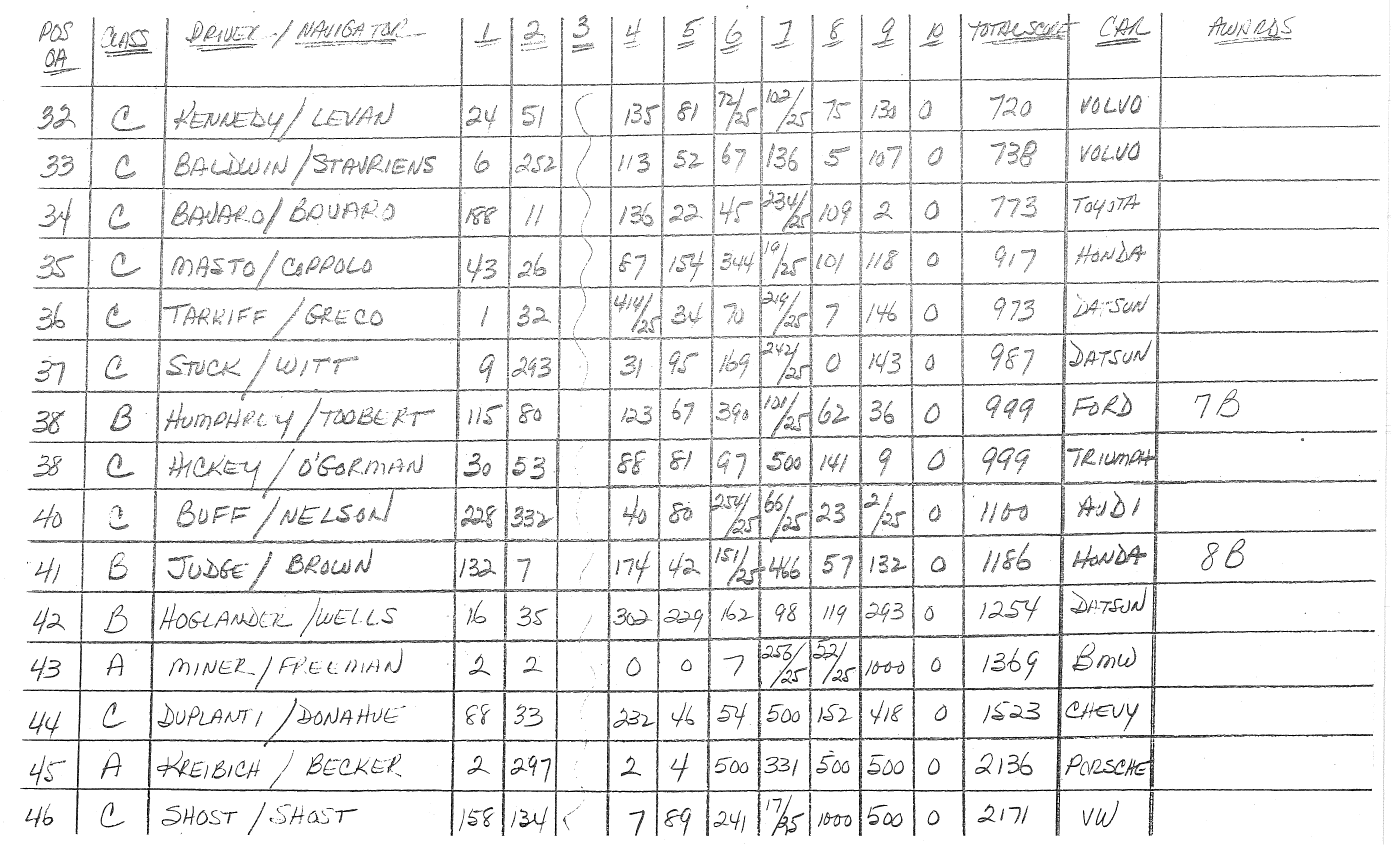 POS OA CLASS DRIVER / NAVIGATOR 1 2 3 4 5 6 7 8 9 10 TOTAL SCORE CAR AWARDS
32 C KENNEDY / LEVAN 24 51 135 81 72/25 102/25 75 130 0 720 VOLVO
33 C BALDWIN / STAVRIENS 6 252 113 52 67 136 5 107 0 738 VOLVO
34 C BAVARO / BAVARO 188 11 136 22 45 234/25 109 2 0 773 TOYOTA
35 C MASTO / COPPOLO 43 26 87 154 344 19/25 101 118 0 917 HONDA
36 C TARRIFF / GRECO 1 32 414/25 34 70 219/25 7 146 0 973 DATSUN
37 C STUCK / WITT 9 293 31 95 169 242/25 0 143 0 987 DATSUN
38 B HUMPHREY / TOOBERT 115 80 123 67 390 101/25 62 36 0 999 FORD 7B
38 C HICKEY / O'GORMAN 30 53 88 81 97 500 141 9 0 999 TRIUMPH
40 C BUFF / NELSON 228 332 40 80 254/25 66/25 23 2/25 0 1100 AUDI
41 B JUDGE / BROWN 132 7 174 42 151/25 466 57 132 0 1186 HONDA 8B
42 B HOGLANDER / WELLS 16 35 302 229 162 98 119 293 0 1254 DATSUN
43 A MINER / FREEMAN 2 2 0 0 7 256/25 52/25 1000 0 1369 BMW
44 C DUPLANTI / DONAHUE 88 33 232 46 54 500 152 418 0 1523 CHEVY
45 A KREIBICH / BECKER 2 297 2 4 500 331 500 500 0 2136 PORSCHE
46 C SHOST / SHOST 158 134 7 89 241 17/25 1000 500 0 2171 VW